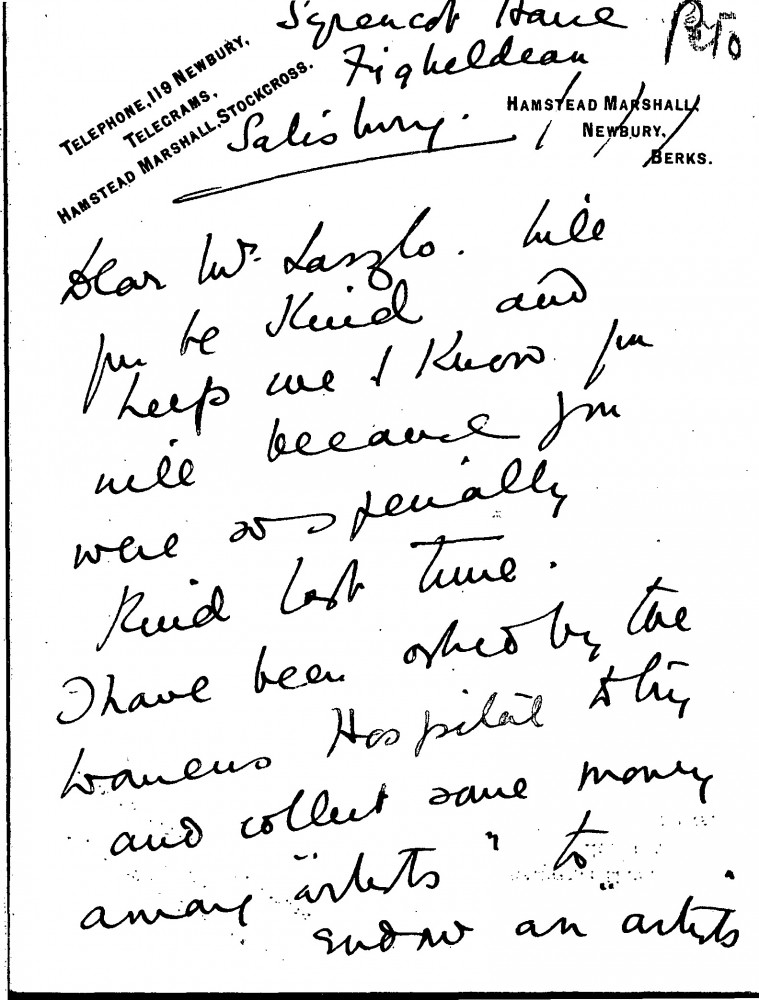 Syrencot House
PTO
Figheldean
Salisbury.
TELEPHONE, 119 NEWBURY.
TELEGRAMS,
HAMSTEAD MARSHALL, STOCKCROSS.
HAMSTEAD MARSHALL,
NEWBURY,
BERKS.
Dear Mr. Laszlo. Will
you be Kind and
help me I Know you
will because you
were so specially
Kind last time.
I have been asked by the
Womens Hospital to try
and collect some money
among "artists" to
endow an "artists"